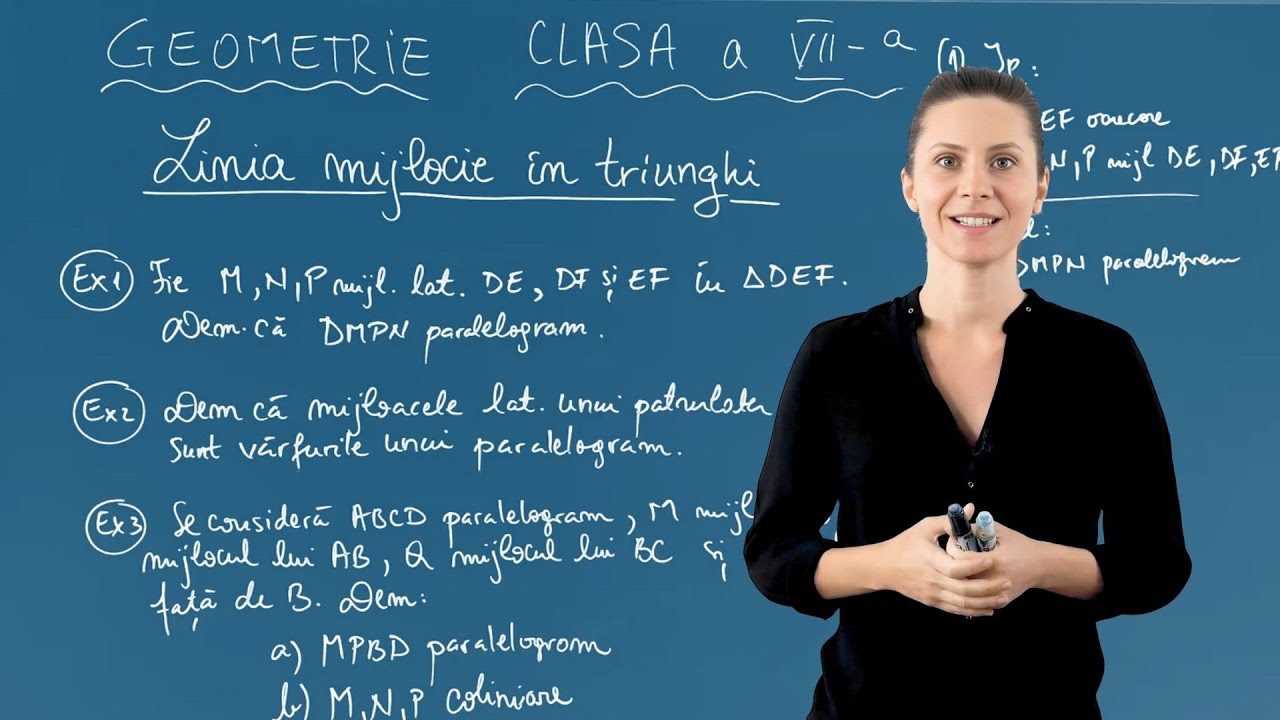 GEOMETRIE CLASA a VII-a
Linia mijlocie în triunghi
Ex1 Fie M,N,P mijl. lat. DE, DF și EF în ΔDEF.
Dem. că DMPN paralelogram.
Ex2 Dem că mijloacele lat. unui
sunt vârfurile unui paralelogram.
Ex3 Se consideră ABCD paralelogram, M mijl
mijlocul lui AB, Q mijlocul lui BC și
față de B. Dem:
a) MPBD paralelogram
b) M,N,P coliniare
EF oarecare
N,P mijl DE, DF, EF
DMPN paralelogram